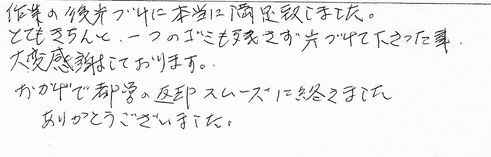 作業の後片づけに本当に満足致しました。
とてもきちんと、一つのゴミも残さず片づけて下さった事、
大変感謝しております。
おかげで都営の返却スムーズに終えました
ありがとうございました。